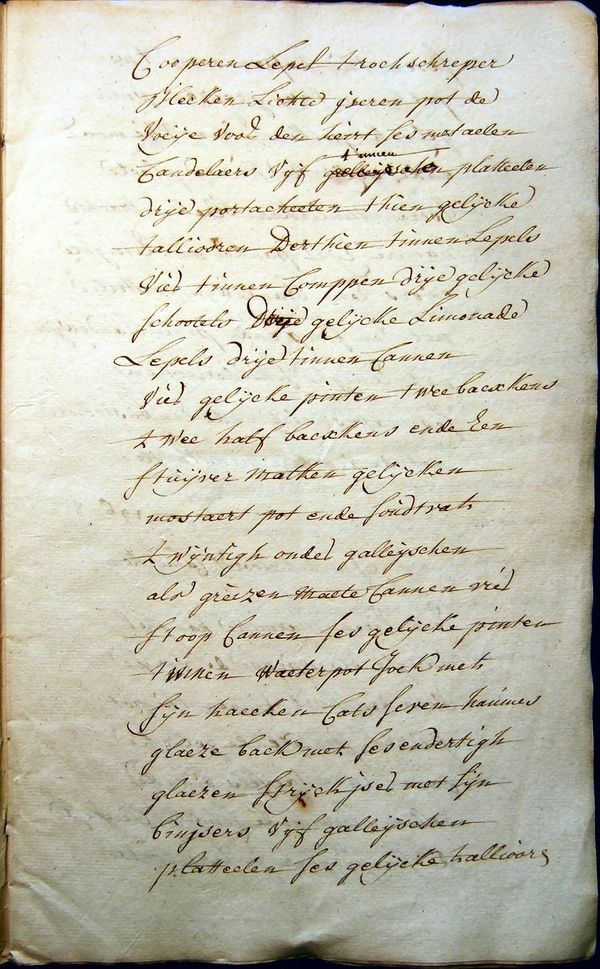 Cooperen Lepel trochschreper
blecken Lichte ijseren pot de
Voeije Voor den heirt ses metaelen
Candelaers Vijf tinnen platteelen
drije portacheelen thien gelijcke
talliooren Derthien tinnen Lepels
Vier tinnen Comppen drije gelijcke
schootels Drije gelijcke Limonade
Lepels drije tinnen Cannen
Vier gelijcke pinten twee baeskens
twee half baeskens ende Een
stuijver matken gelijcken
mostaert pot ende soudtvat
twijntigh onder galleijschen
als greizen maete Cannen vier
stoop Cannen ses gelijcke pinten
tinnen waeterpot Jock met
sijn haecken Cats seven haimes
glaeze back met sesendertigh
glaezen strijckijser met sijn
buijsers Vijf galleijschen
platteelen ses gelijcke tallioors